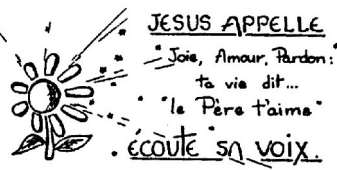 JESUS APPELLE
"Joie, Amour, Pardon:
ta vie dit...
"le Père t'aime"
ECOUTE SA VOIX.